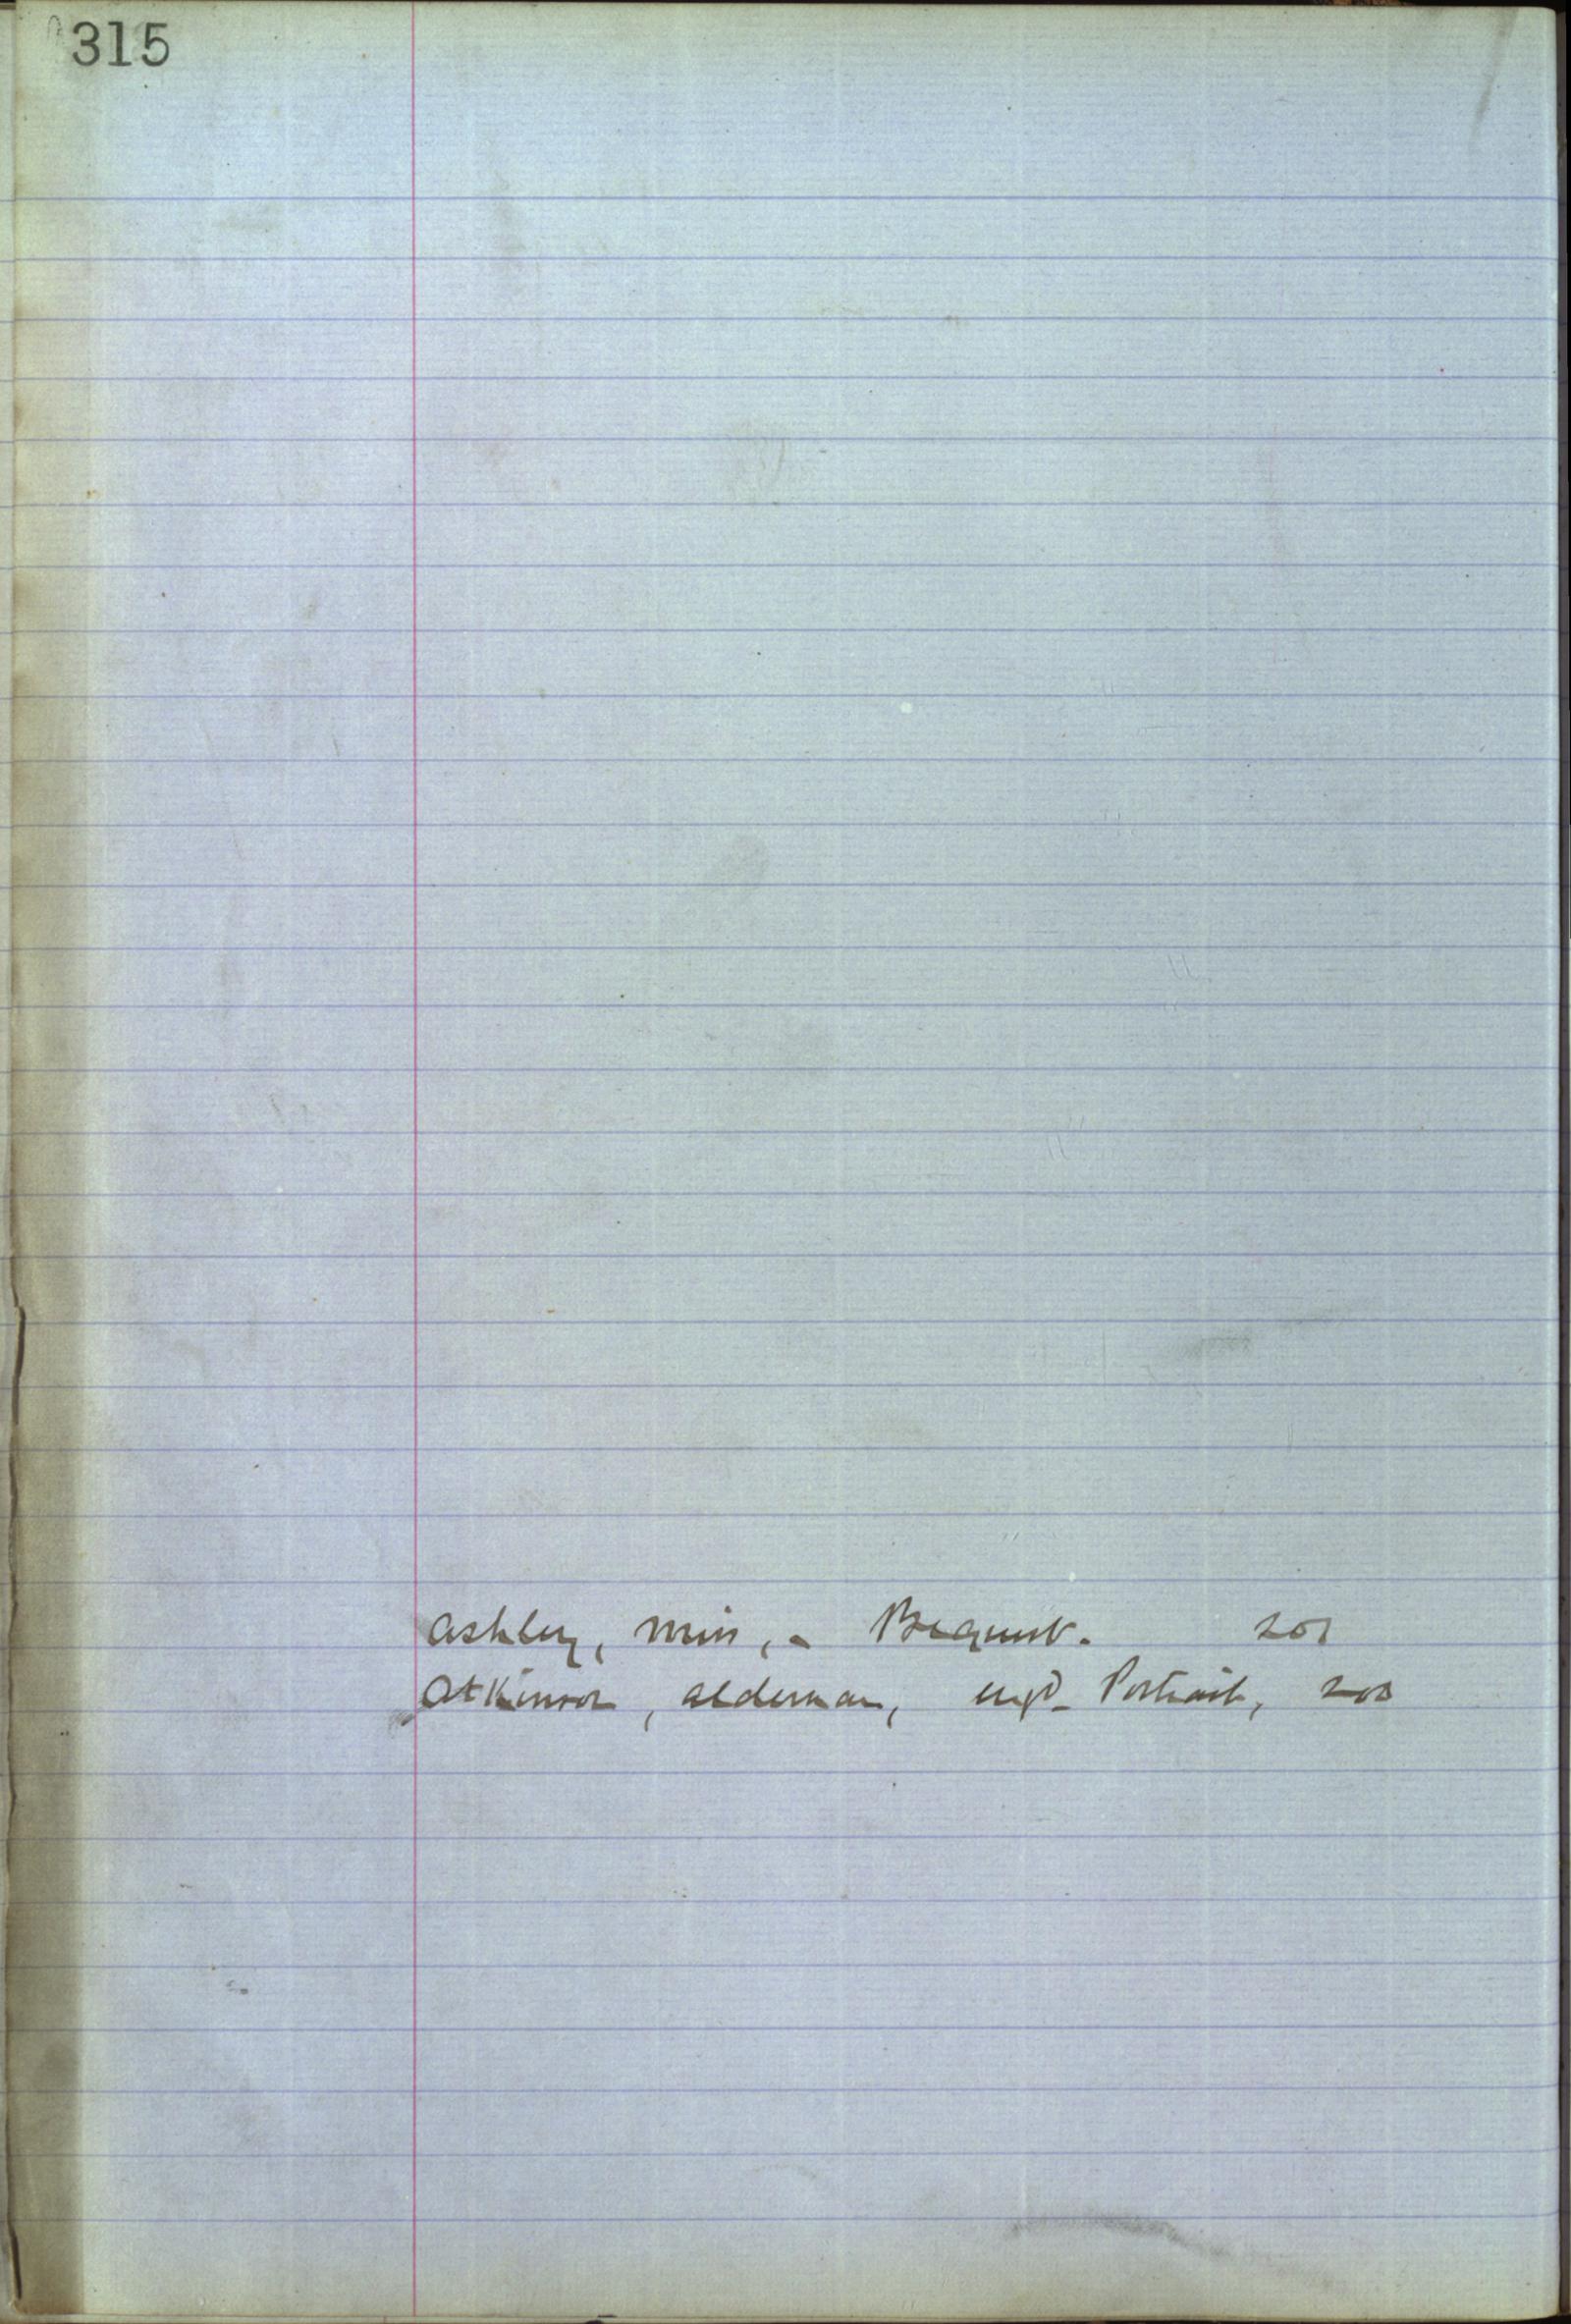 315
Ashley, Miss, - Bequest. 201
Atkinson, alderman, engd Portrait,